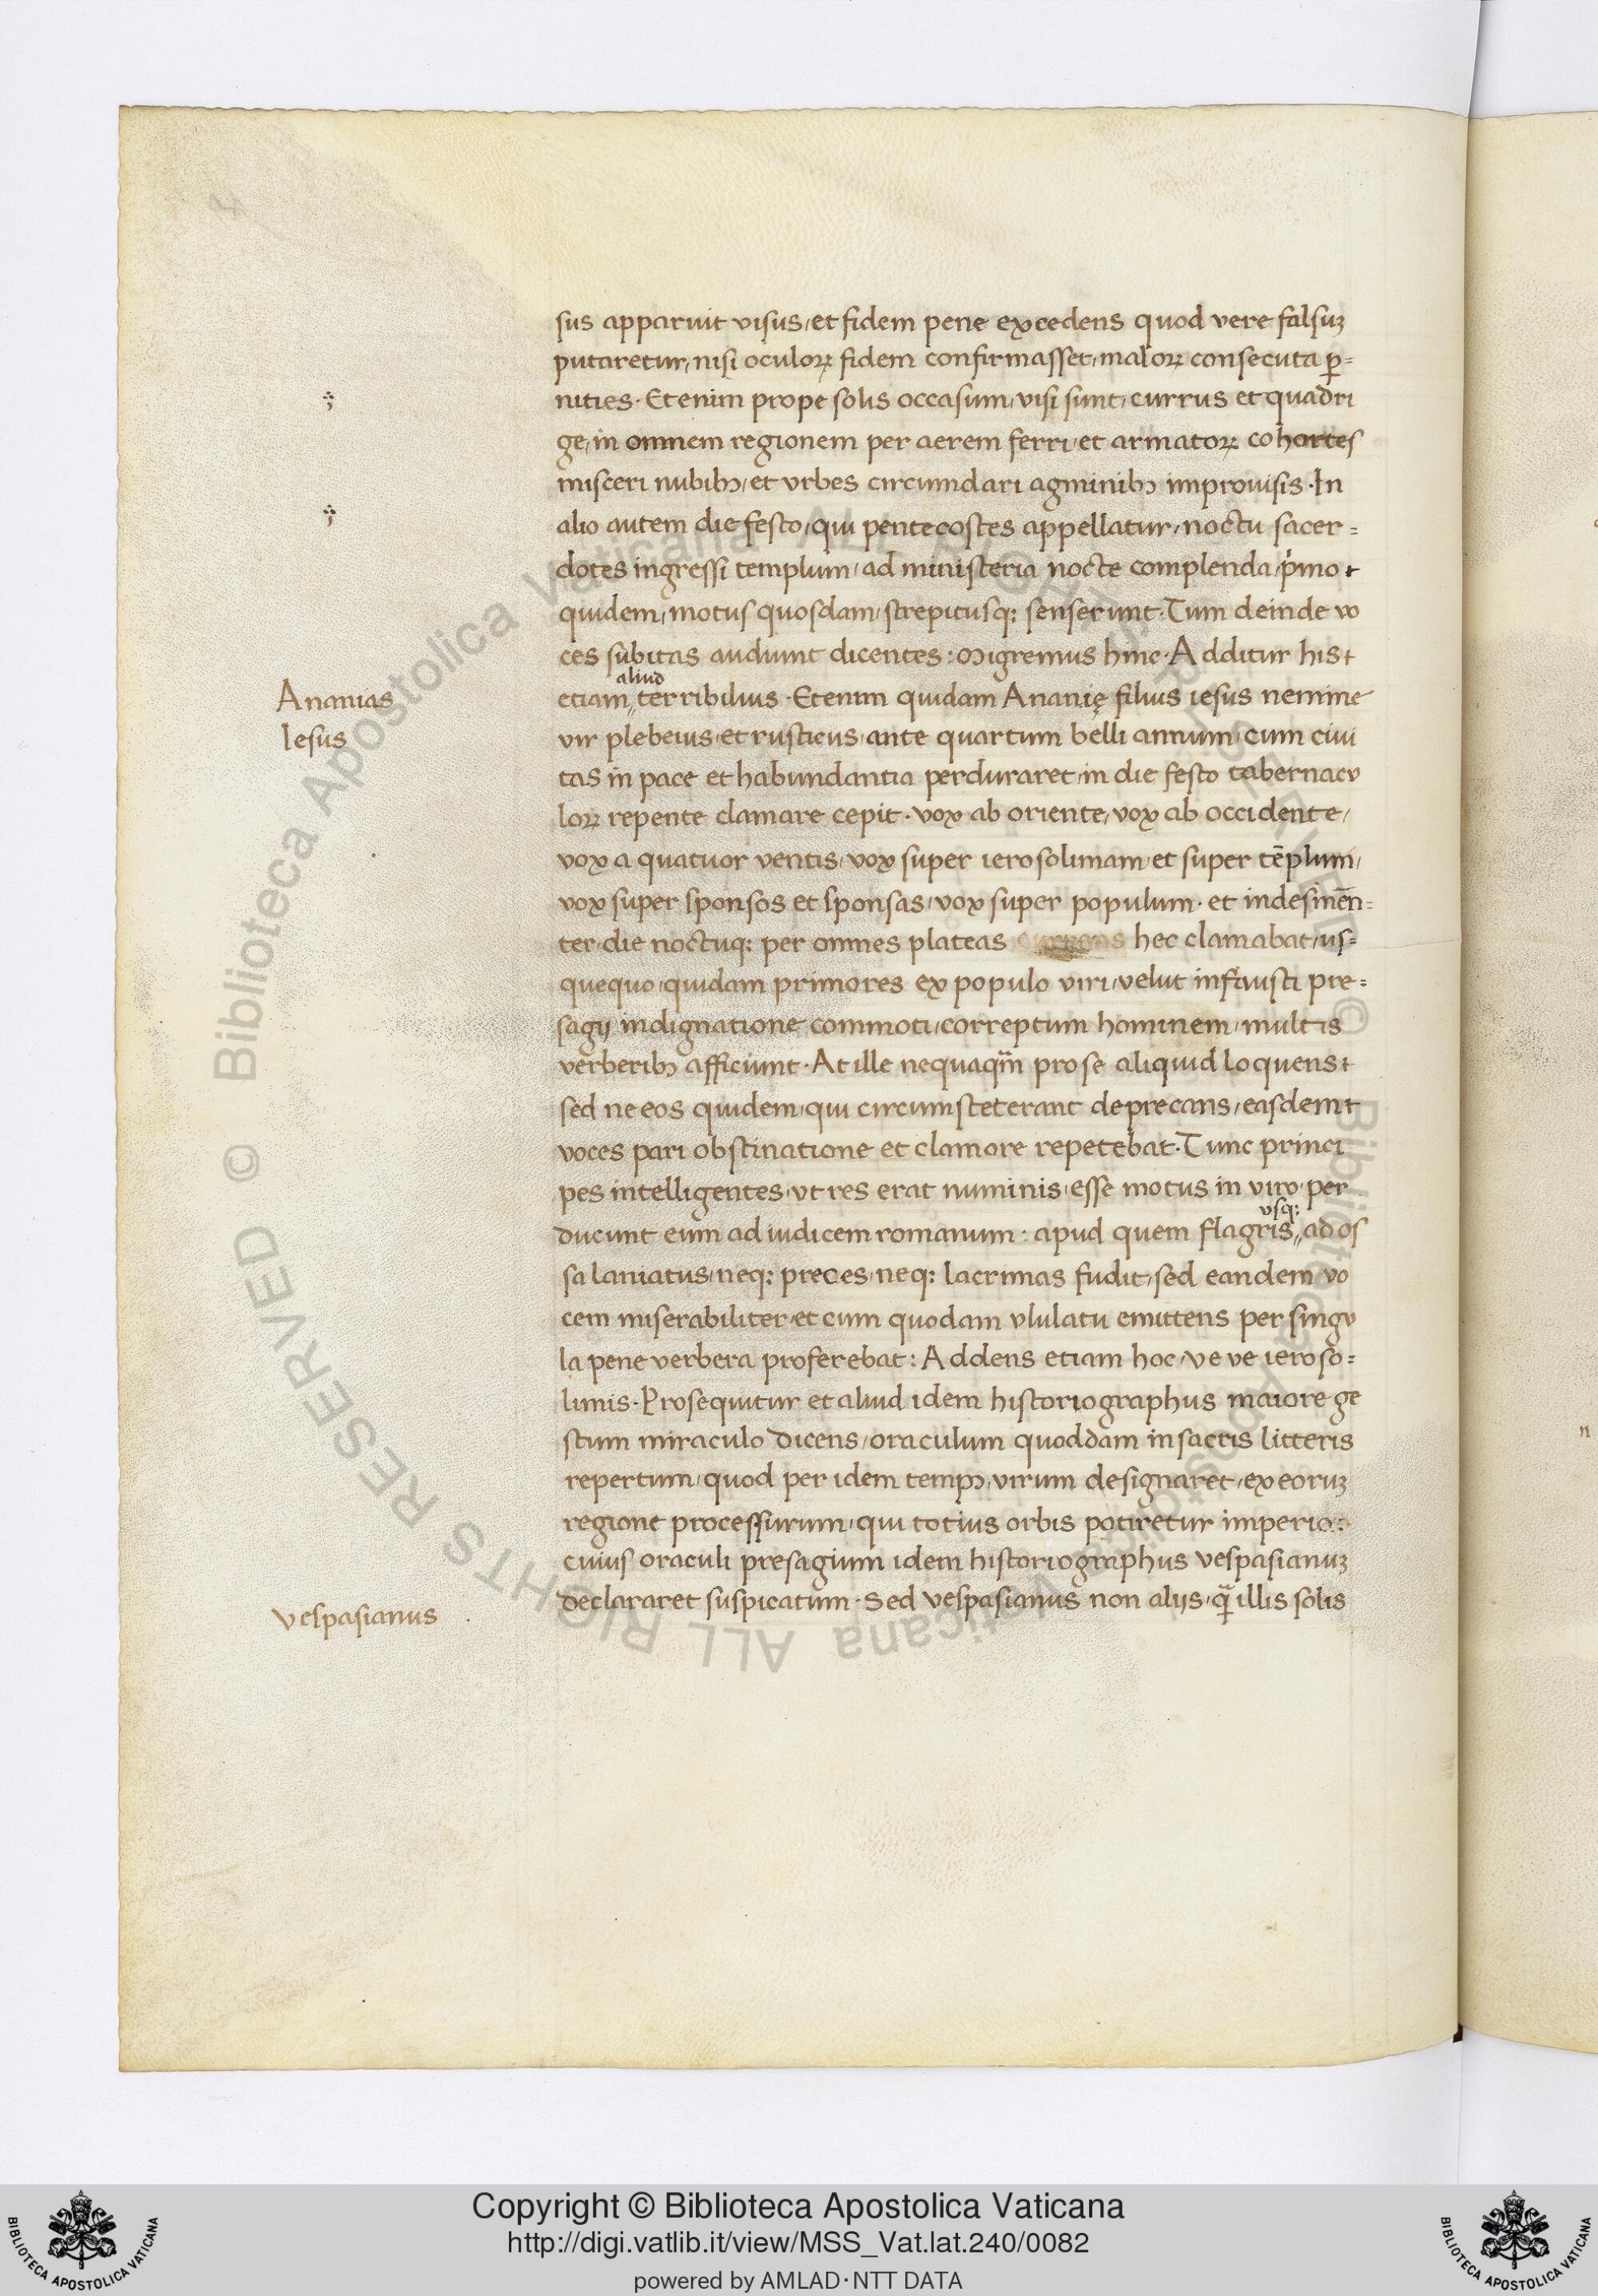 sus apparuit visus, et fidem pene excedens quod vere falsuꝫ
putaretur, nisi oculoꝝ fidem confirmasset, maloꝝ consecuta ꝑ=
nities. Etenim prope solis occasum, visi sunt, currus et quadri
ge, in omnem regionem per aerem ferri, et armatoꝝ cohortes
misceri nubibꝫ, et vrbes circumdari agminibꝫ improuisis. In
alio autem die festo, qui pentecostes appellatur, noctu sacer=
dotes ingressi templum, ad ministeria nocte complenda, pͥmo
quidem, motus quosdam, strepitusqꝫ senserunt. Tum deinde vo
ces subitas audiunt dicentes: Migremus hinc. Additur his
aliud
etiam,, terribilius. Etenim quidam Ananię filius iesus nomine
Ananias
vir plebeius, et rusticus, ante quartum belli annum, cum ciui
Iesus
tas in pace et habundantia perduraret, in die festo tabernacu
loꝝ repente clamare cepit. vox ab oriente, vox ab occidente,
vox a quatuor ventis, vox super ierosolimam, et super tēplum,
vox super sponsos et sponsas, vox super populum. et indesinēn=
ter, die noctuqꝫ per omnes plateas hec clamabat, us=
quequo, quidam primores ex populo viri, velut infausti pre=
sagij indignatione commoti, correptum hominem, multis
verberibꝫ afficiunt. At ille nequaqm̄ pro se aliquid loquens
sed ne eos quidem, qui circumsteterant deprecans, easdem
voces pari obstinatione et clamore repetebat. Tunc princi
pes intelligentes, vt res erat numinis, esse motus in viro, per
vsqꝫ
ducunt eum ad iudicem romanum. apud quem flagris,, ad os
sa laniatus, neqꝫ preces, neqꝫ lacrimas fudit, sed eandem vo
cem miserabiliter, et cum quodam vlulatu emittens per singu
la pene verbera proferebat: Addens etiam hoc, ve ve ieroso=
limis. Prosequitur et aliud idem historiographus maiore ge
stum miraculo dicens, oraculum quoddam in sacris litteris
repertum, quod per idem tempꝫ, virum designaret, ex eoruꝫ
regione processurum, qui totius orbis potiretur imperio:
cuius oraculi presagium idem historiographus vespasianuꝫ
declararet suspicatum. Sed vespasianus non alijs, qᷓ illis solis
vespasianus
Copyright © Biblioteca Apostolica Vaticana
http://digi.vatlib.it/view/MSS_Vat.lat.240/0082
powered by AMLAD·NTT DATA
BIBLIOTECA APOSTOLICA VATICANA
BIBLIOTECA APOSTOLICA VATICANA
© Biblioteca Apostolica Vaticana ALL RIGHTS RESERVED © Biblioteca Apostolica Vaticana ALL RIGHTS RESERVED